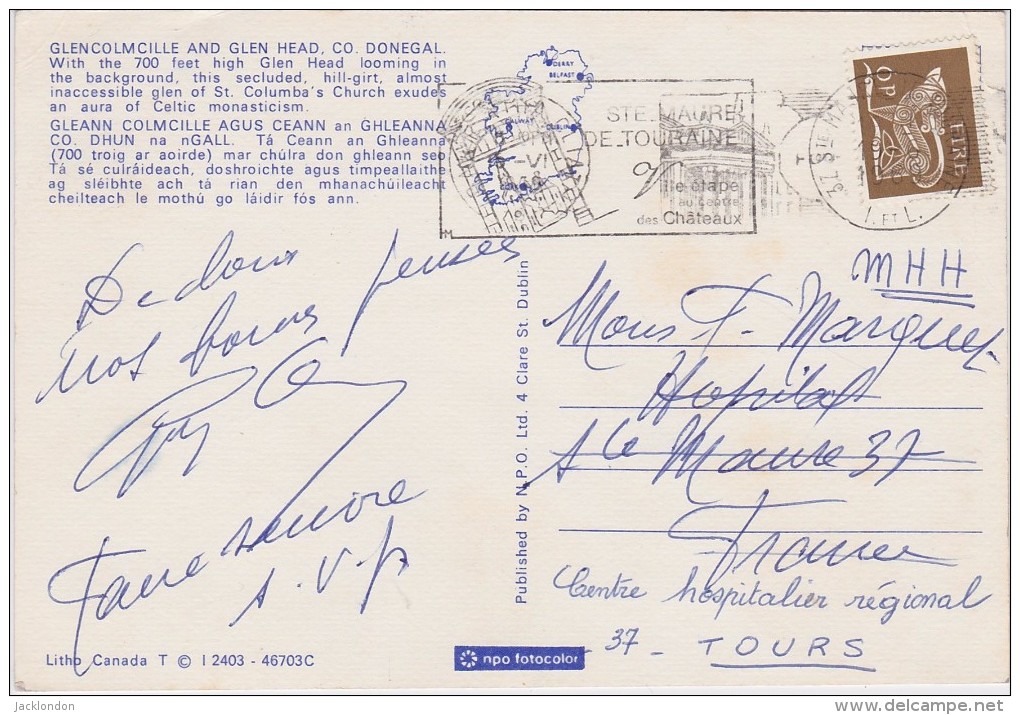 GLENCOLMCILLE AND GLEN HEAD, CO. DONEGAL.
With the 700 feet high Glen Head looming in
the background, this secluded, hill-girt, almost
inaccessible glen of St. Columba's Church exudes
an aura of Celtic monasticism.
GLEANN COLMCILLE AGUS CEANN an GHLEANNA
CO. DHUN na nGALL. Tá Ceann an Ghleanna
(700 troig ar aoirde) mar chúlra don ghleann seo
Tá sé cuiráideach, doshroichte agus timpeallaithe
ag sléibhte ach tá rian den mhanachúileacht
cheilteach le mothú go láidir fós ann.
DERRY
BELFAST
GALWAY
DUBLIN
STE MAURE
DE TOURAINE
Ville étape
au centre
des Châteaux
M
37 STE M
I. ET L.
EIRE
De doux pensées
nos bonnes
Faire suivre
S.V.P
Published by N.P.O. Ltd. 4 Clare St. Dublin
MHH
Mons T. Marquez
Hopital
Ste Maure 37
France
Centre hospitalier régional
- 37 - TOURS
Litho Canada T © I 2403 - 46703C
npo fotocolor
jacklondon
www.delcampe.net